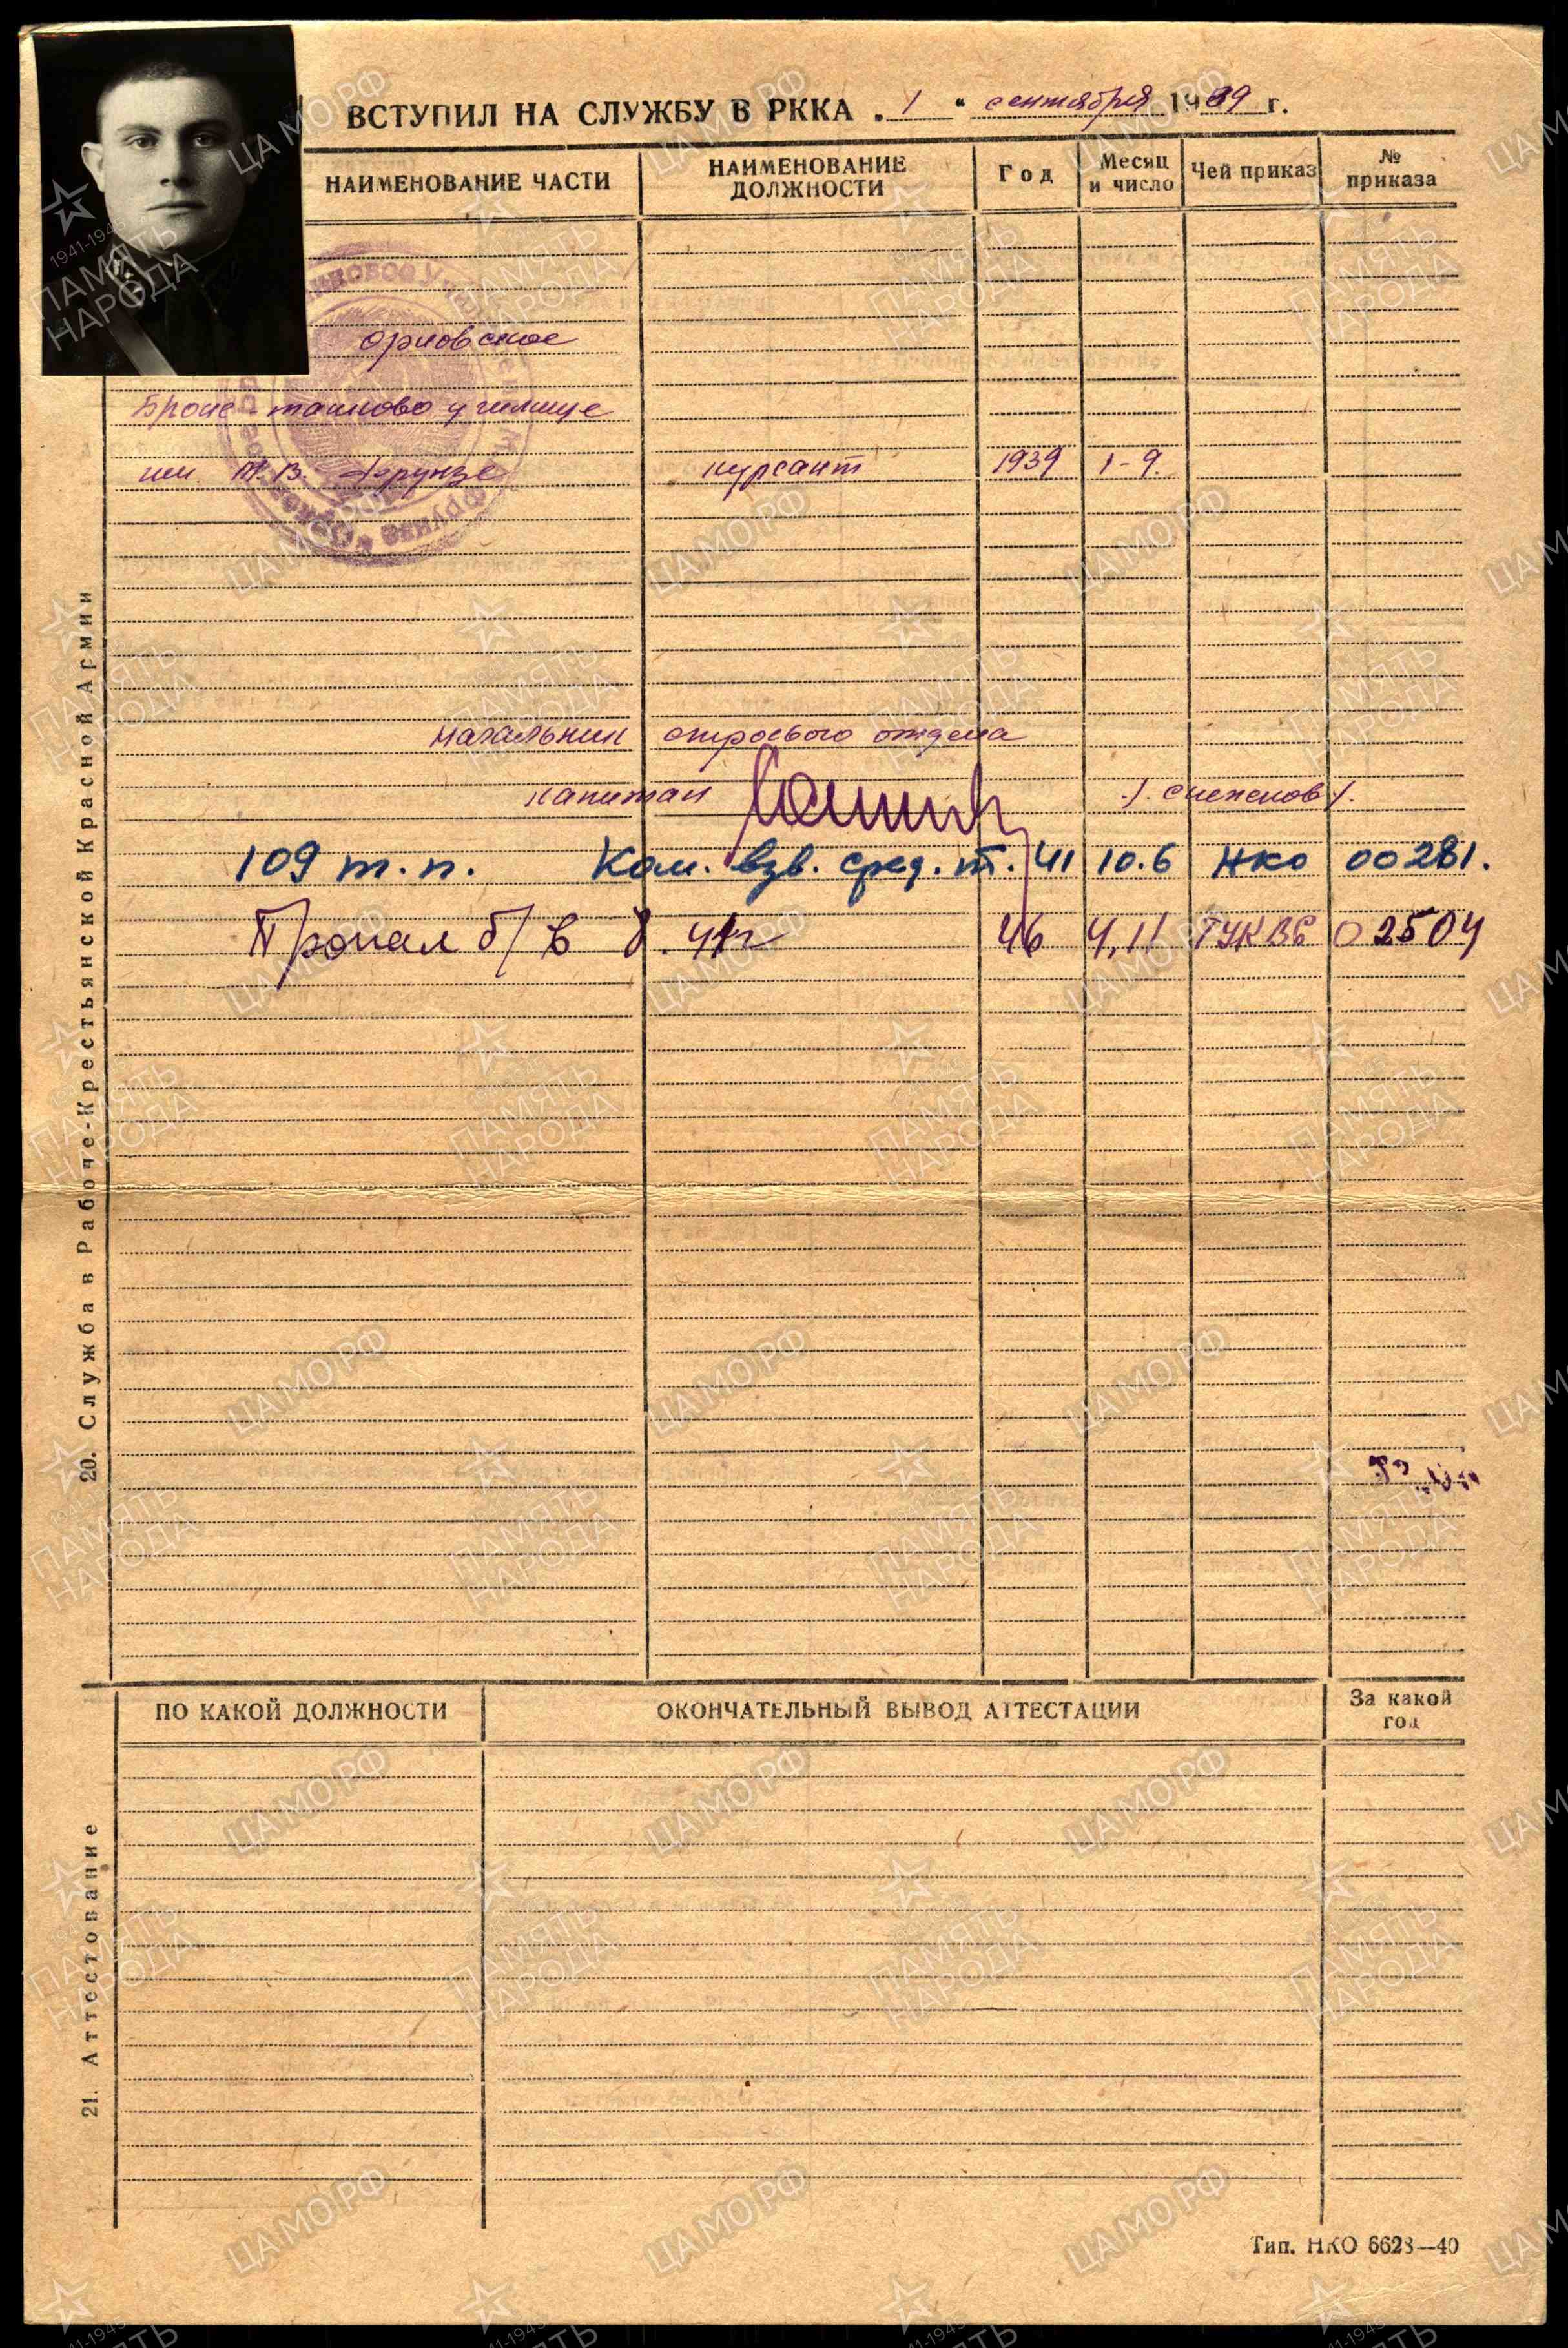 ВСТУПИЛ НА СЛУЖБУ В РККА „ 1 “ сентября 1939 г.
НАИМЕНОВАНИЕ ЧАСТИ НАИМЕНОВАНИЕ ДОЛЖНОСТИ Год Месяц и число Чей приказ № приказа
Орловское
Броне-танково училище
им. М.В. Фрунзе курсант 1939 1-9.
Начальник строевого отдела
капитан
109 т.п. Ком. взв. сред. т. 41 10.6 НКО 00281.
Пропал б/в 41г 46 4.11 ГУК ВС 02504
20. Служба в Рабоче-Крестьянской Красной Армии
ПО КАКОЙ ДОЛЖНОСТИ ОКОНЧАТЕЛЬНЫЙ ВЫВОД АТТЕСТАЦИИ За какой год
21. Аттестование
Тип. НКО 6628—40
ЦАМО.РФ
1941-1945
ПАМЯТЬ
НАРОДА